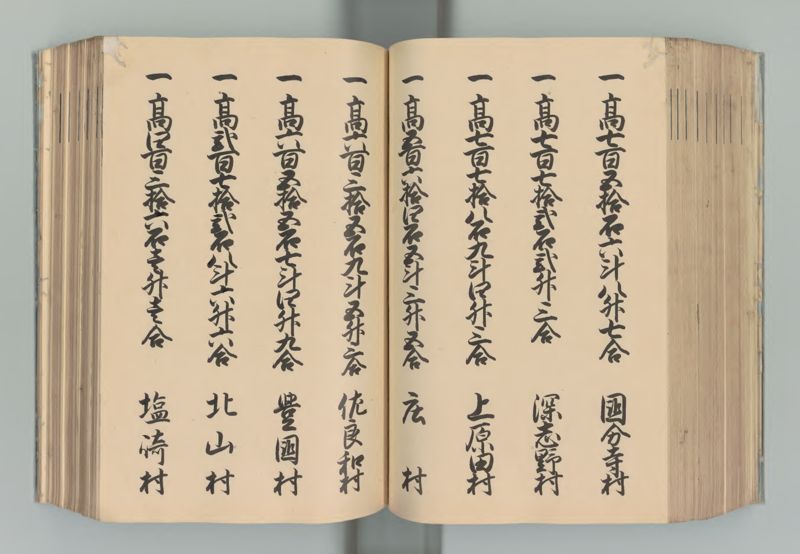 一高七百五拾石六斗八升七合 国分寺村
一高七百七拾弐石弐升二合 深志野村
一高七百七拾八石九斗四升二合 上原田村
一高五百六拾四石五斗三升五合 庄村
一高六百三拾五石九斗五升六合 佐良和村
一高六百五拾五石七斗四升九合 豊国村
一高弐百七拾弐石八斗六升六合 北山村
一高四百三拾六石壱升壱合 塩崎村